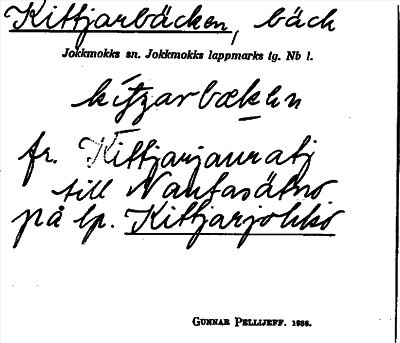 Kittjarbäcken, bäck
Jokkmokks sn. Jokkmokks lappmarks tg. Nb l.
kítʒarbækken
fr. Kittjarjauratj
till Nautasätno
på lp. Kittjarjokko
GUNNAR PELLIJEFF. 1936.